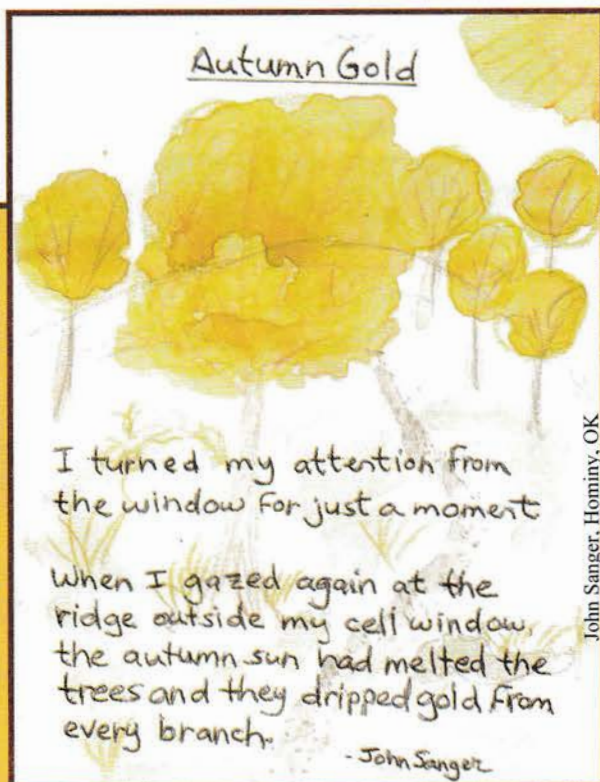 Autumn Gold
I turned my attention from
the window for just a moment
When I gazed again at the
ridge outside my cell window,
the autumn sun had melted the
trees and they dripped gold from
every branch.
- John Sanger
John Sanger, Hominy, OK